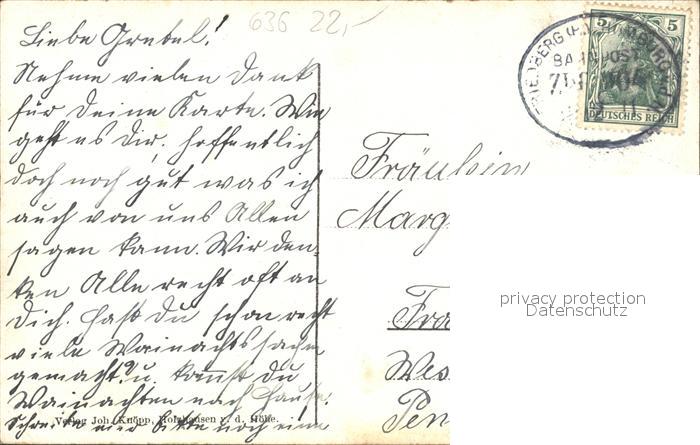 636 22,-
Liebe Gretel!
Nehme vielen Dank
für Deine Karte. Wie
geht es Dir, hoffentlich
doch noch gut was ich
auch von uns Allen
sagen kann. Wir den-
ken Alle recht oft an
Dich. Hast Du schon recht
viele Wainachtssachen
gemacht? u. kannst Du
Wainachten nach Hause.
Schreibe mir bitte noch eine
Verlag Joh. Knöpp, Holzhausen v. d. Höhe.
5 5
DEUTSCHES REICH
BAHNPOST
Fräulein
Marg
Fra
Wes
Pen
privacy protection
Datenschutz